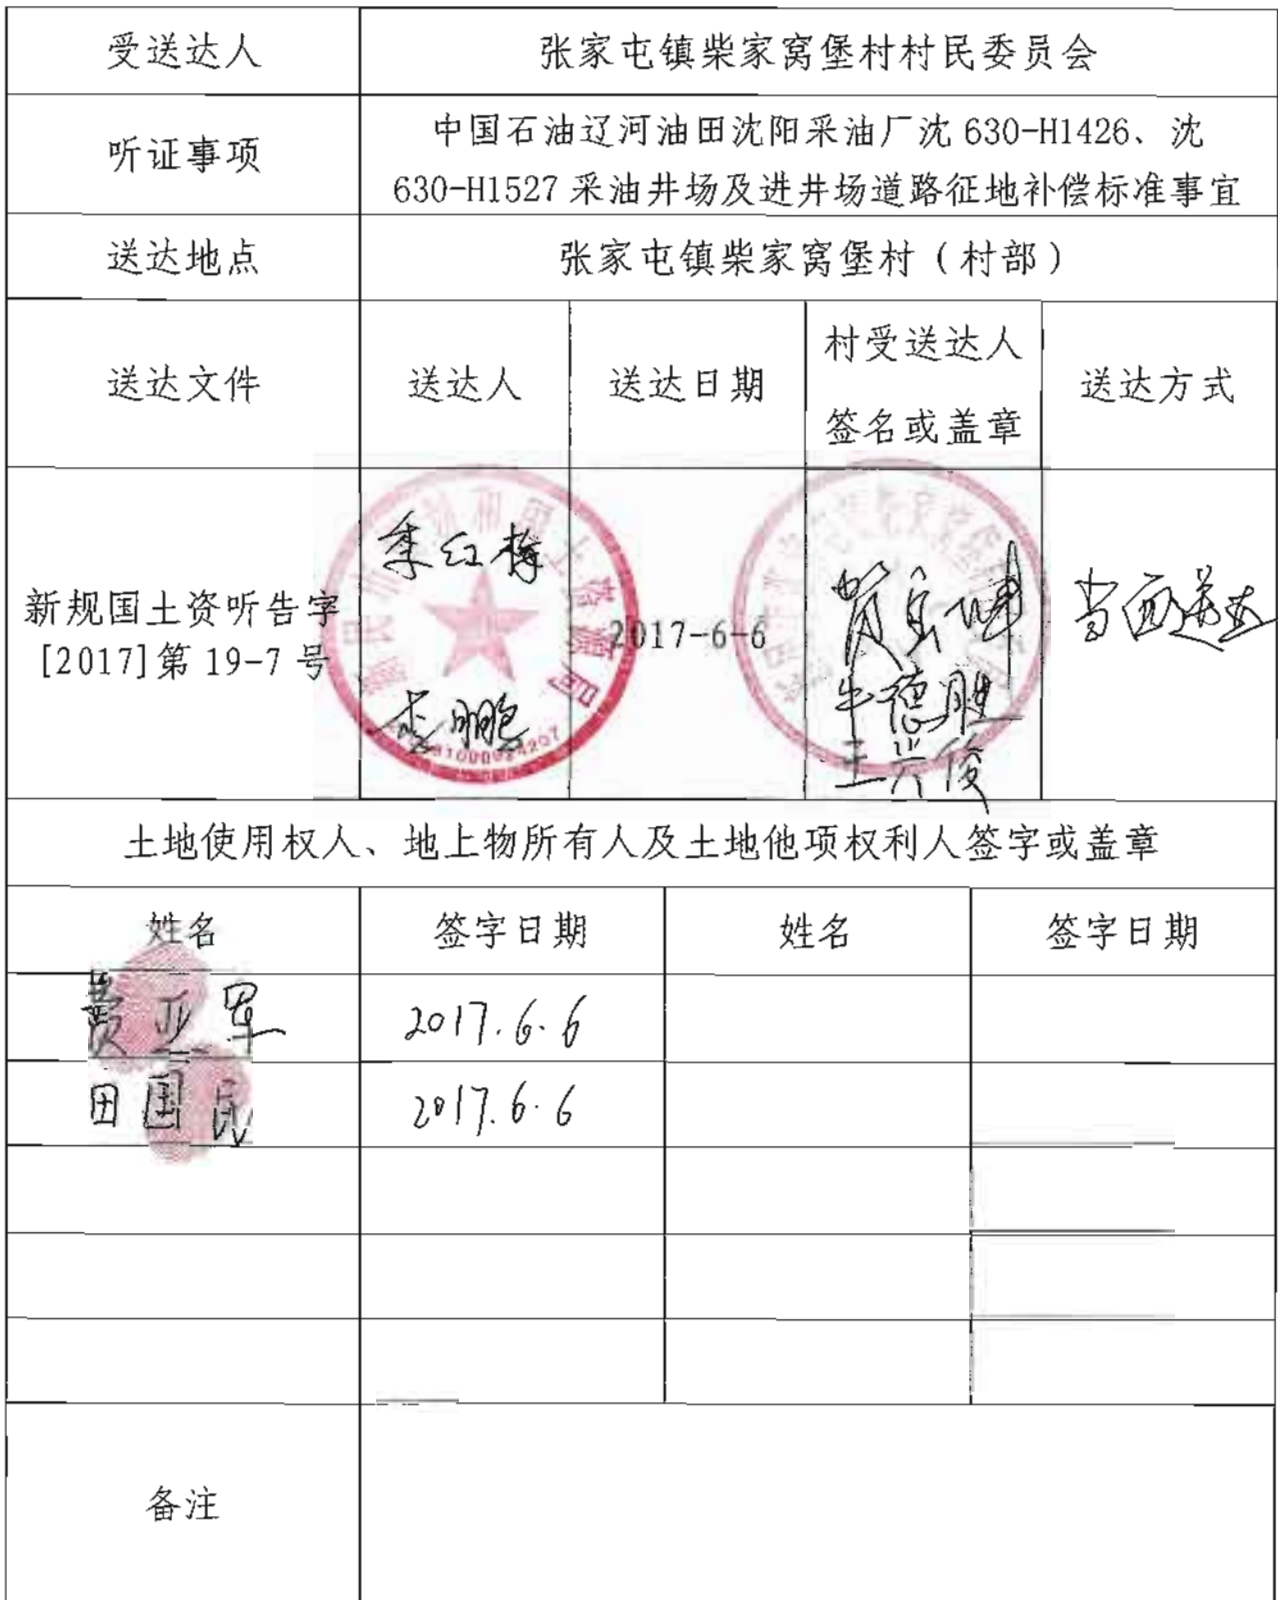 受送达人
张家屯镇柴家窝堡村村民委员会
听证事项
中国石油辽河油田沈阳采油厂沈 630-H1426、沈
630-H1527 采油井场及进井场道路征地补偿标准事宜
送达地点
张家屯镇柴家窝堡村（村部）
送达文件
送达人
送达日期
村受送达人
签名或盖章
送达方式
新规国土资听告字
[2017]第 19-7 号
季红梅
李鹏
2017-6-6
牛德胜
王兴俊
当面送达
土地使用权人、地上物所有人及土地他项权利人签字或盖章
姓名
签字日期
姓名
签字日期
黄亚军
2017.6.6
田国民
2017.6.6
备注